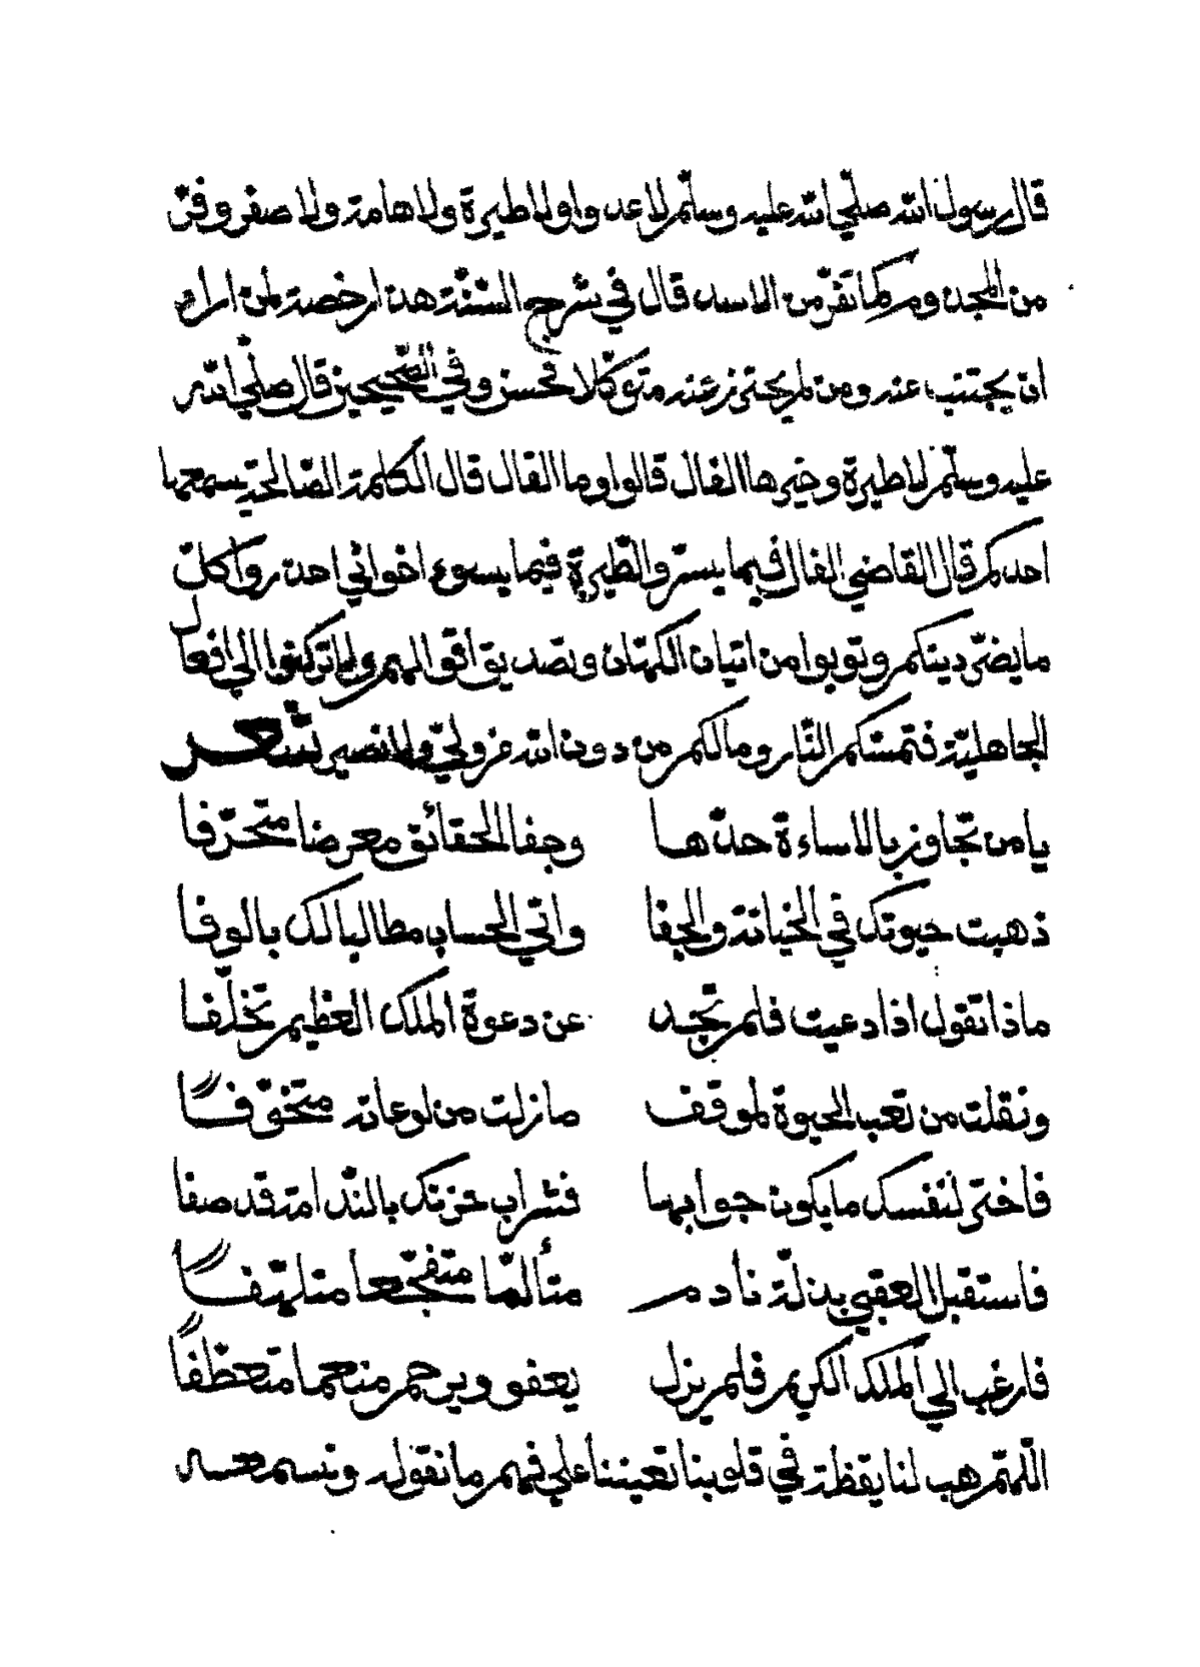 قال رسول الله صلّي الله عليه وسلّم لا عدوا ولا طيرة ولا هامة ولا صفر وفرّ
من المجذوم كما تفرّ من الاسد قال في شرح السّنّة هذا رخصة لمن اراد
ان يجتنب عنه ومن لم يجتنز عنه متوكّلا فحسن وفي الصّحيحين قال صلّي الله
عليه وسلّم لا طيرة وخيرها الفال قالوا وما الفال قال الكلمة الصّالحة يسمعها
احدكم قال القاضي الفال فيما يسرّ والطّيرة فيما يسوء اخواني احذروا كلّ
ما يضرّ دينكم وتوبوا من اتيان الكهّان وتصديق اقوالهم ولا تركنوا الي افعال
الجاهليّة فتمسّكم النّار ومالكم من دون الله من وليّ ولا نصير شعر
يا من تجاوز بالاساءة حدّها وجفا الحقائق معرضا متحرّفا
ذهبت حيوتك في الخيانة والجفا واتي الحساب مطالبا لك بالوفا
ماذا تقول اذا دعيت فلم تجد عن دعوة الملك العظيم تخلّفا
ونقلت من تعب الحيوة لموقف ما زلت من لوعاته متخوّفاً
فاختر لنفسك ما يكون جوابها فشراب حزنك بالنّدامة قد صفا
فاستقبل العقبي بذلّة نادم متألّما متفجّعا متلهّفاً
فارغب الي الملك الكريم فلم يزل يعفو ويرحم منعما متعطّفاً
اللّهمّ هب لنا يقظة في قلوبنا تعيننا علي فهم ما نقوله ونسمعه